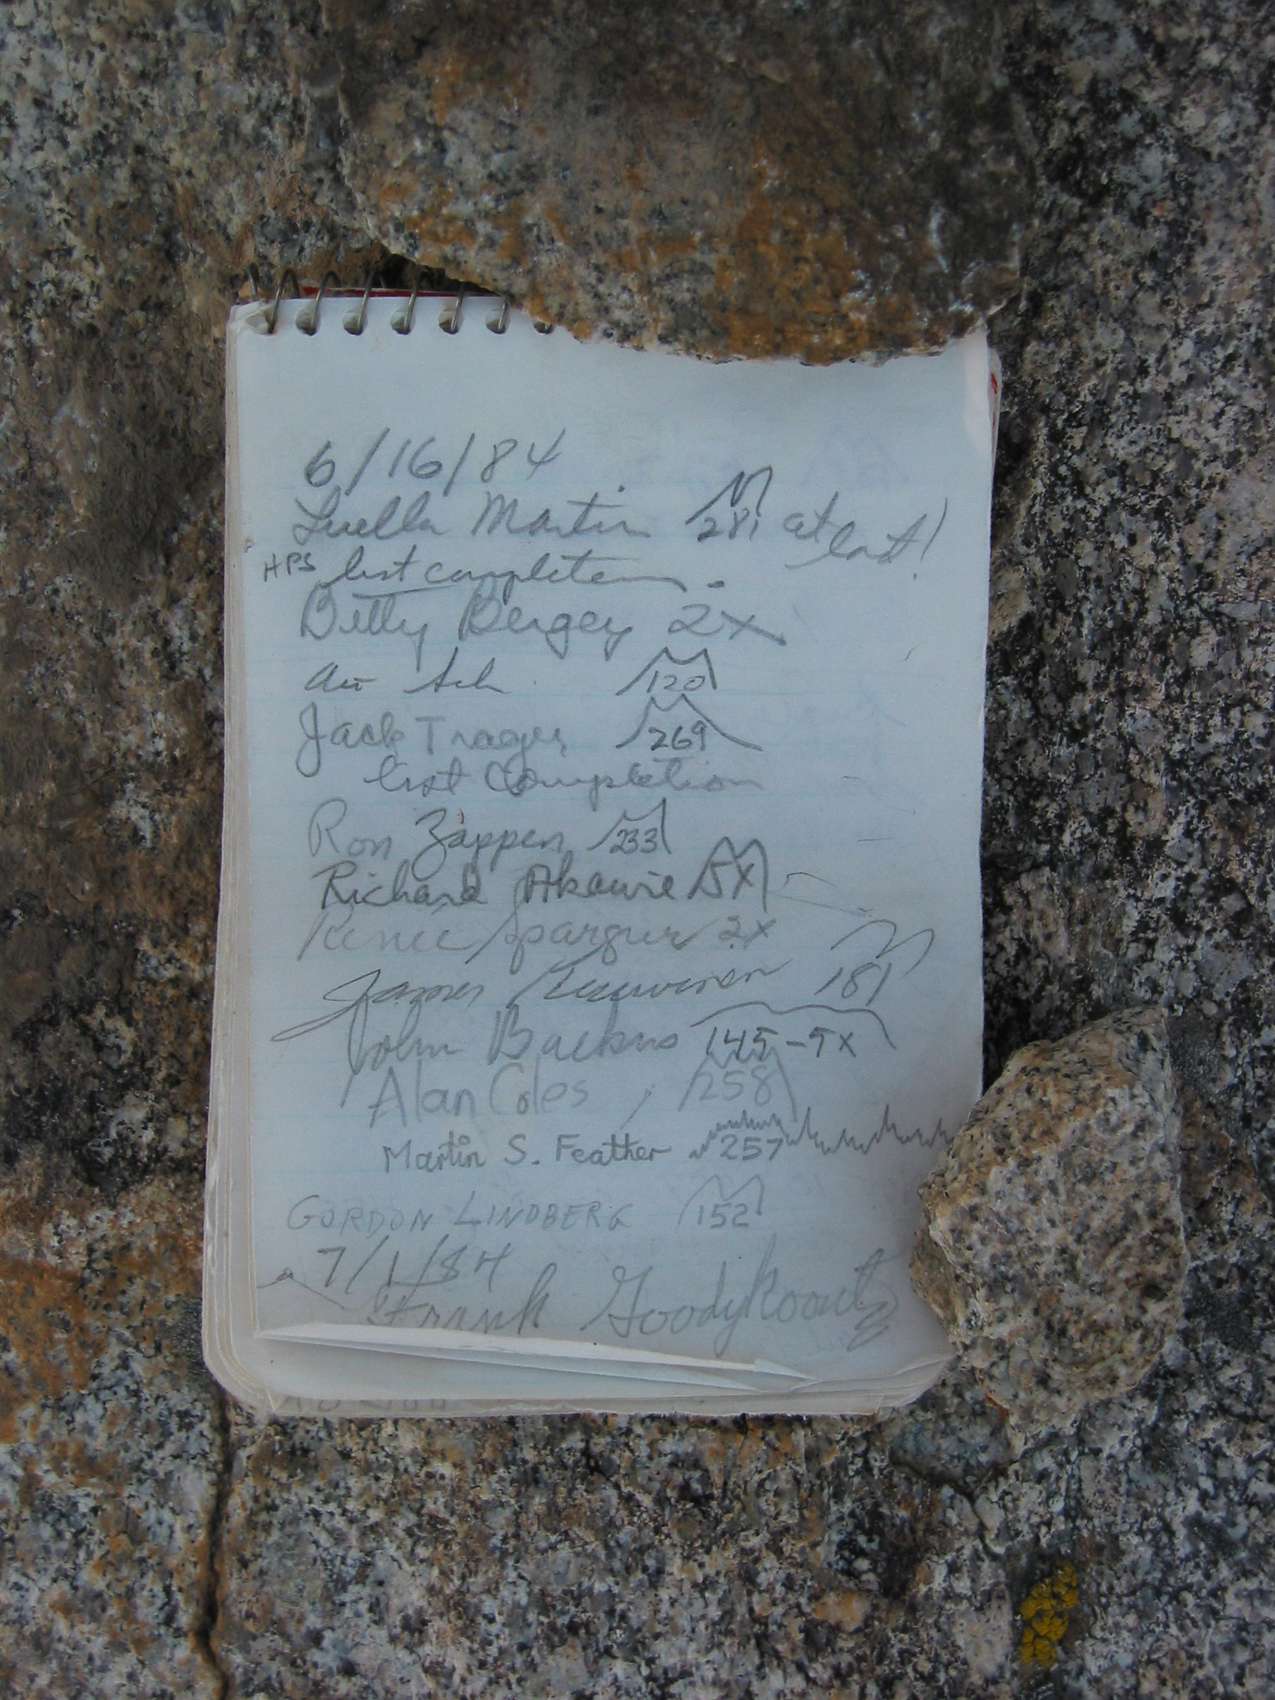 6/16/84
Luella Martin 281 at last!
HPS list completion.
Betty Bergey 2x
120
Jack Trager 269
list Completion
Ron Zappen 233
Richard Akawie 5X
Spargur 2x
James 181
John Backus 145-5x
Alan Coles, 258
Martin S. Feather 257
GORDON LINDBERG 152
7/1/84
Frank Goodykoontz